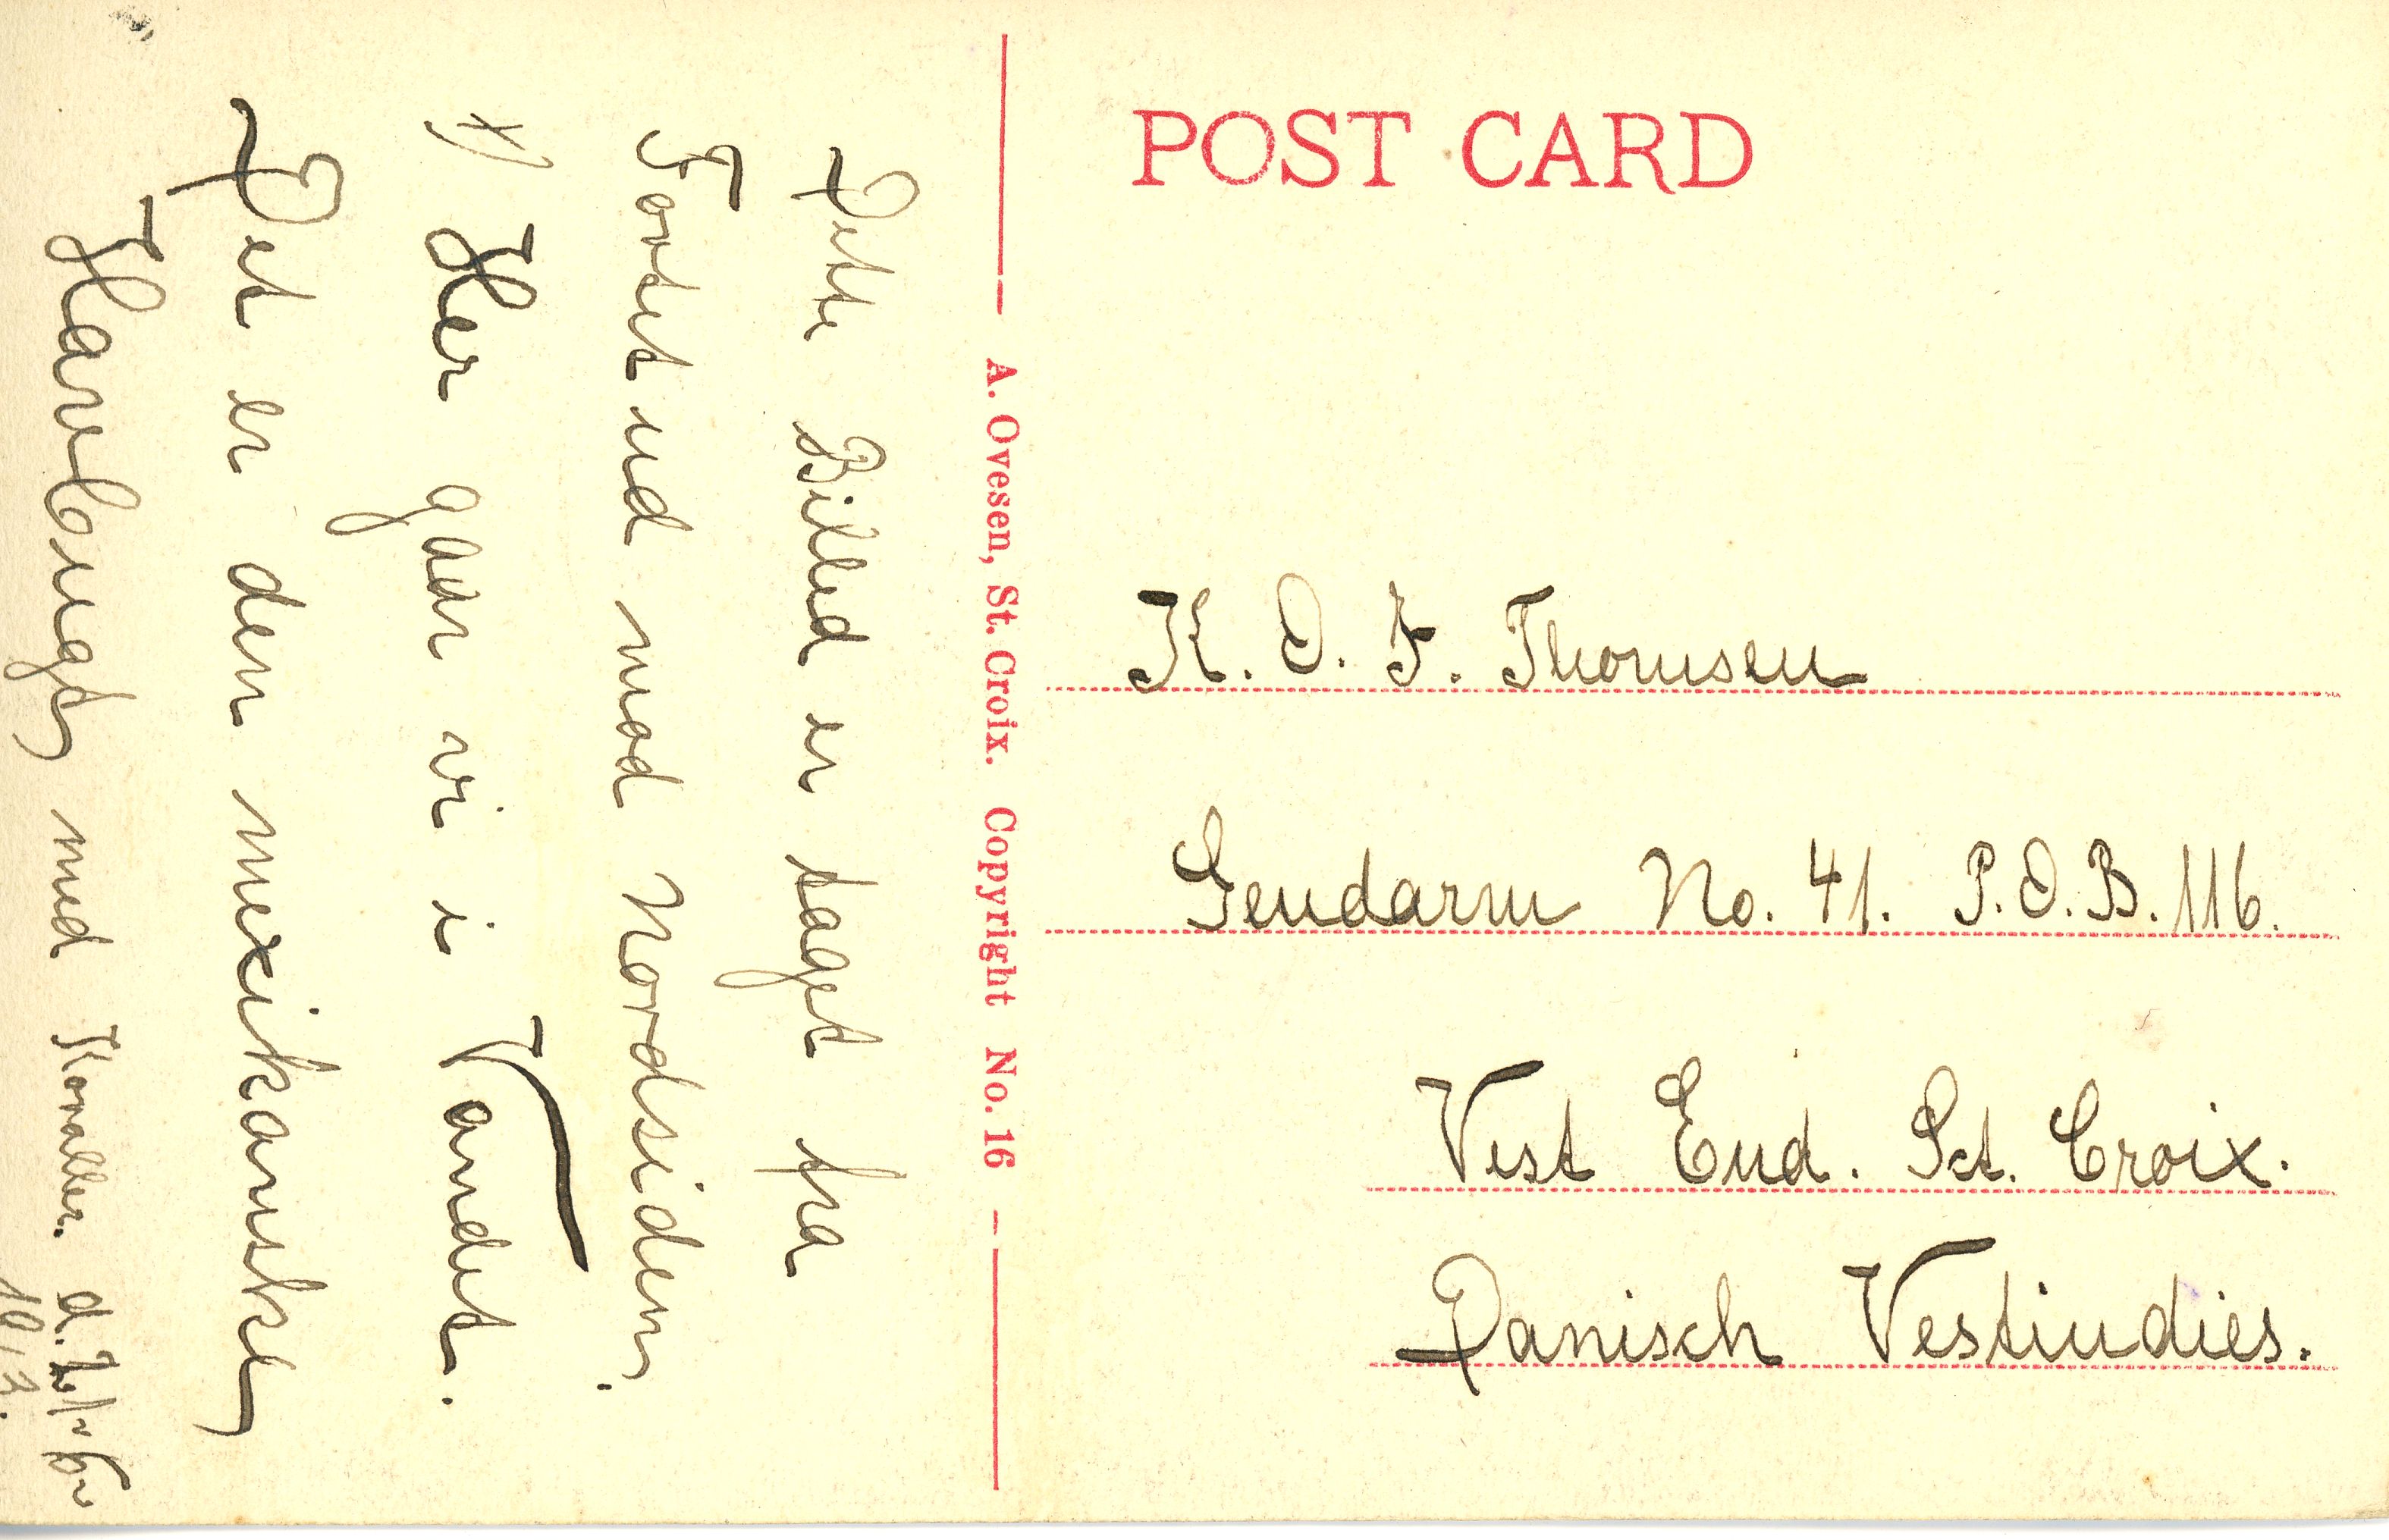 POST CARD
K. O. F. Thomsen
Gendarm No. 41. P.O.B. 116.
Vest End. Sct. Croix.
Danisch Vestindies.
A. Ovesen, St. Croix. Copyright No. 16
Dette Billed er taget fra
Fortet ud mod Nordsiden.
x) Her gaar vi i Vandet.
Det er den mexikanske
Havbugt med Koraller. d.